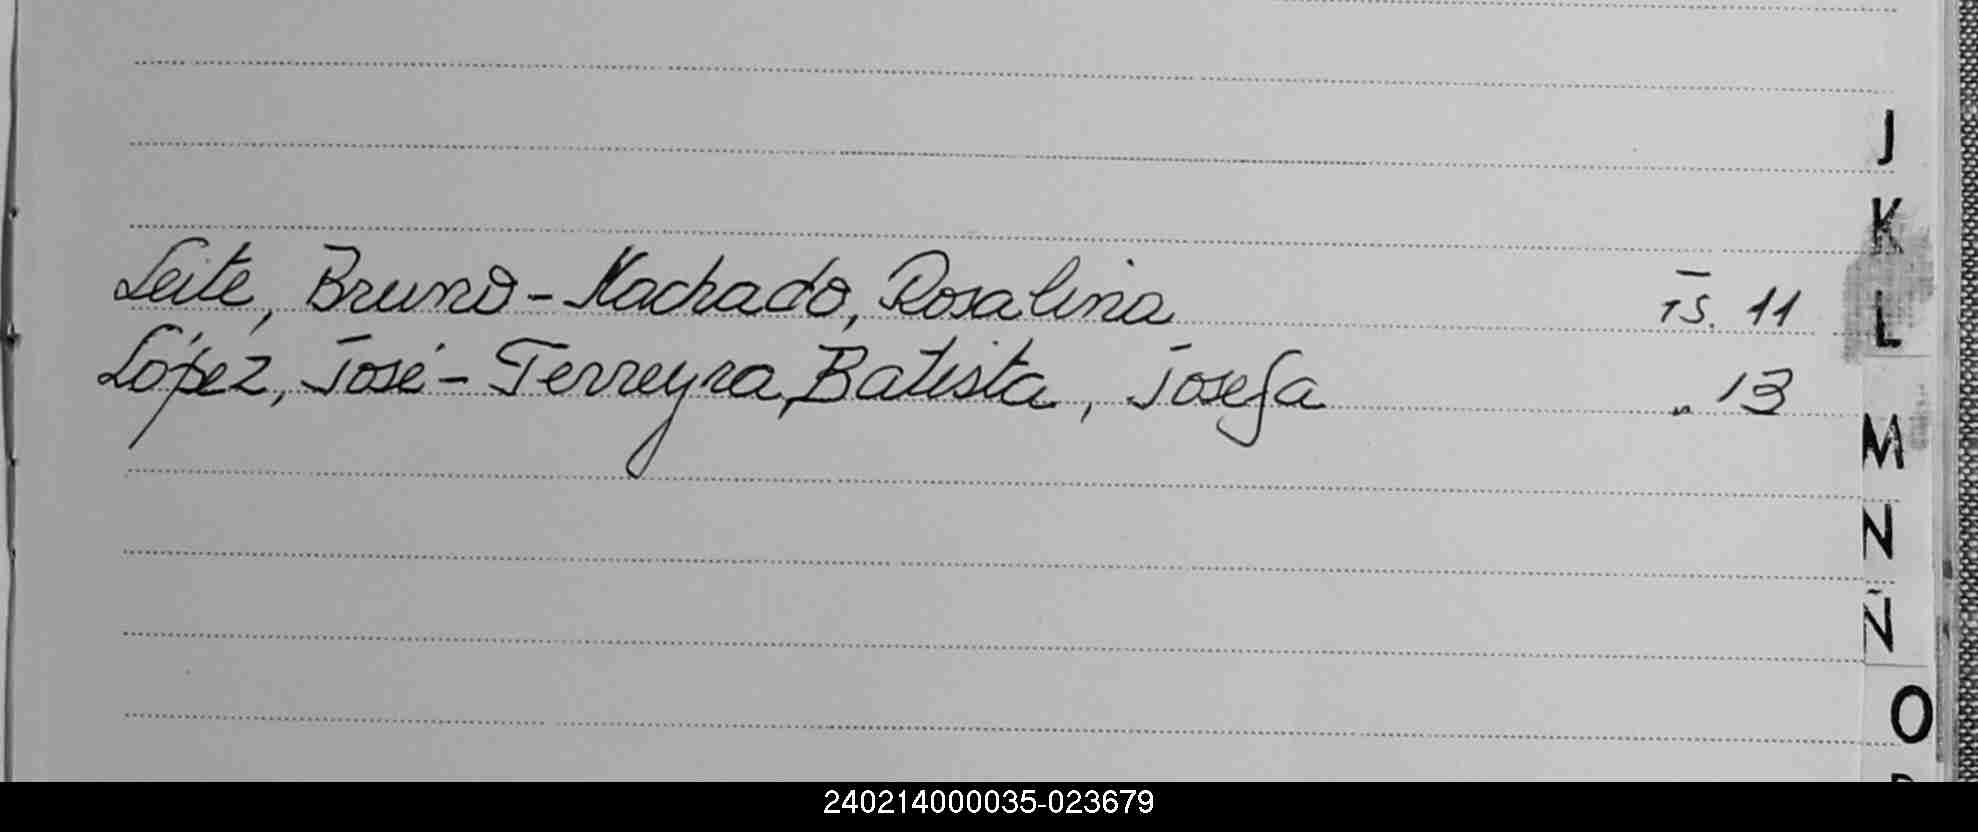 J
K
Leite, Bruno - Machado, Rosalina
L
López, José - Ferreyra Batista, Josefa " 13
M
N
Ñ
O
240214000035-023679